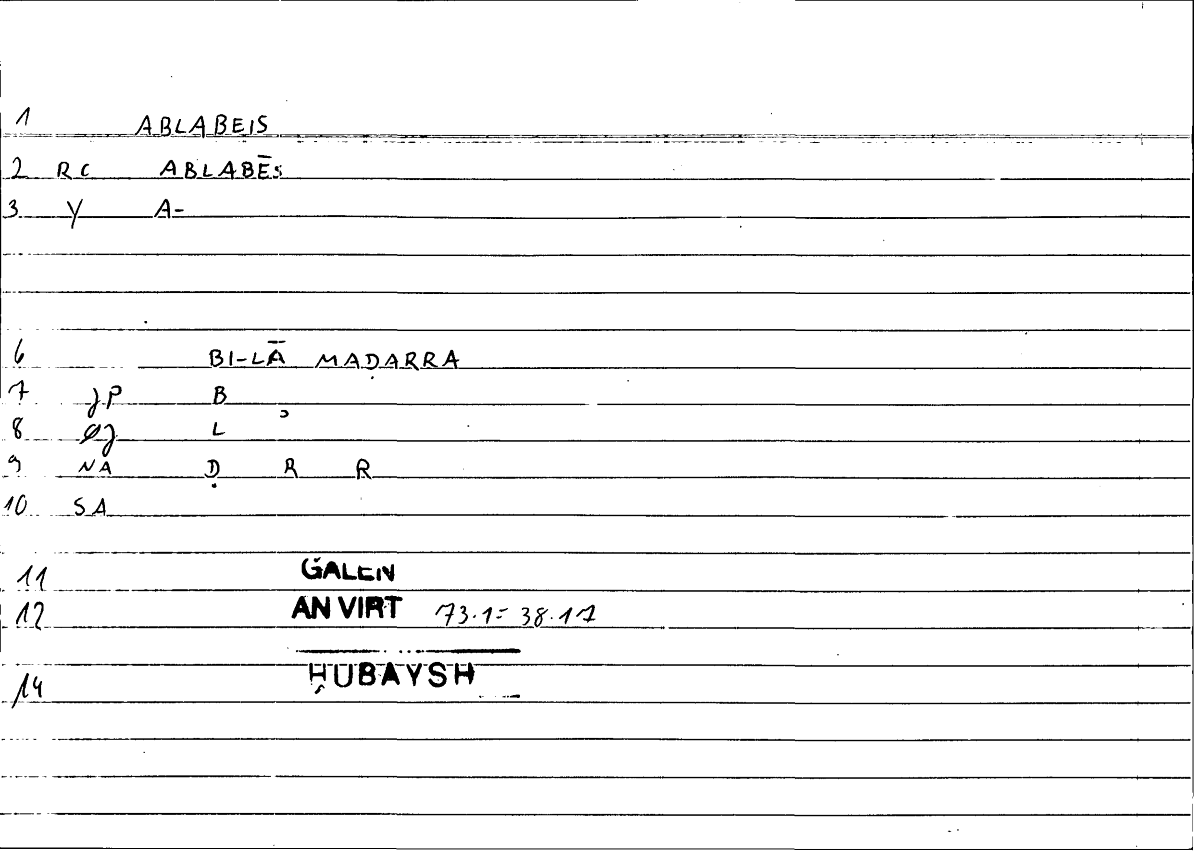 1 ABLABEIS
2 RC ABLABĒS
3 Y A-
6 BI-LĀ MAḌARRA
7 JP B
8 ØJ L
9 NA Ḍ R R
10 SA
11 GALEN
12 AN VIRT 73.1 = 38.17
14 ḤUBAYSH